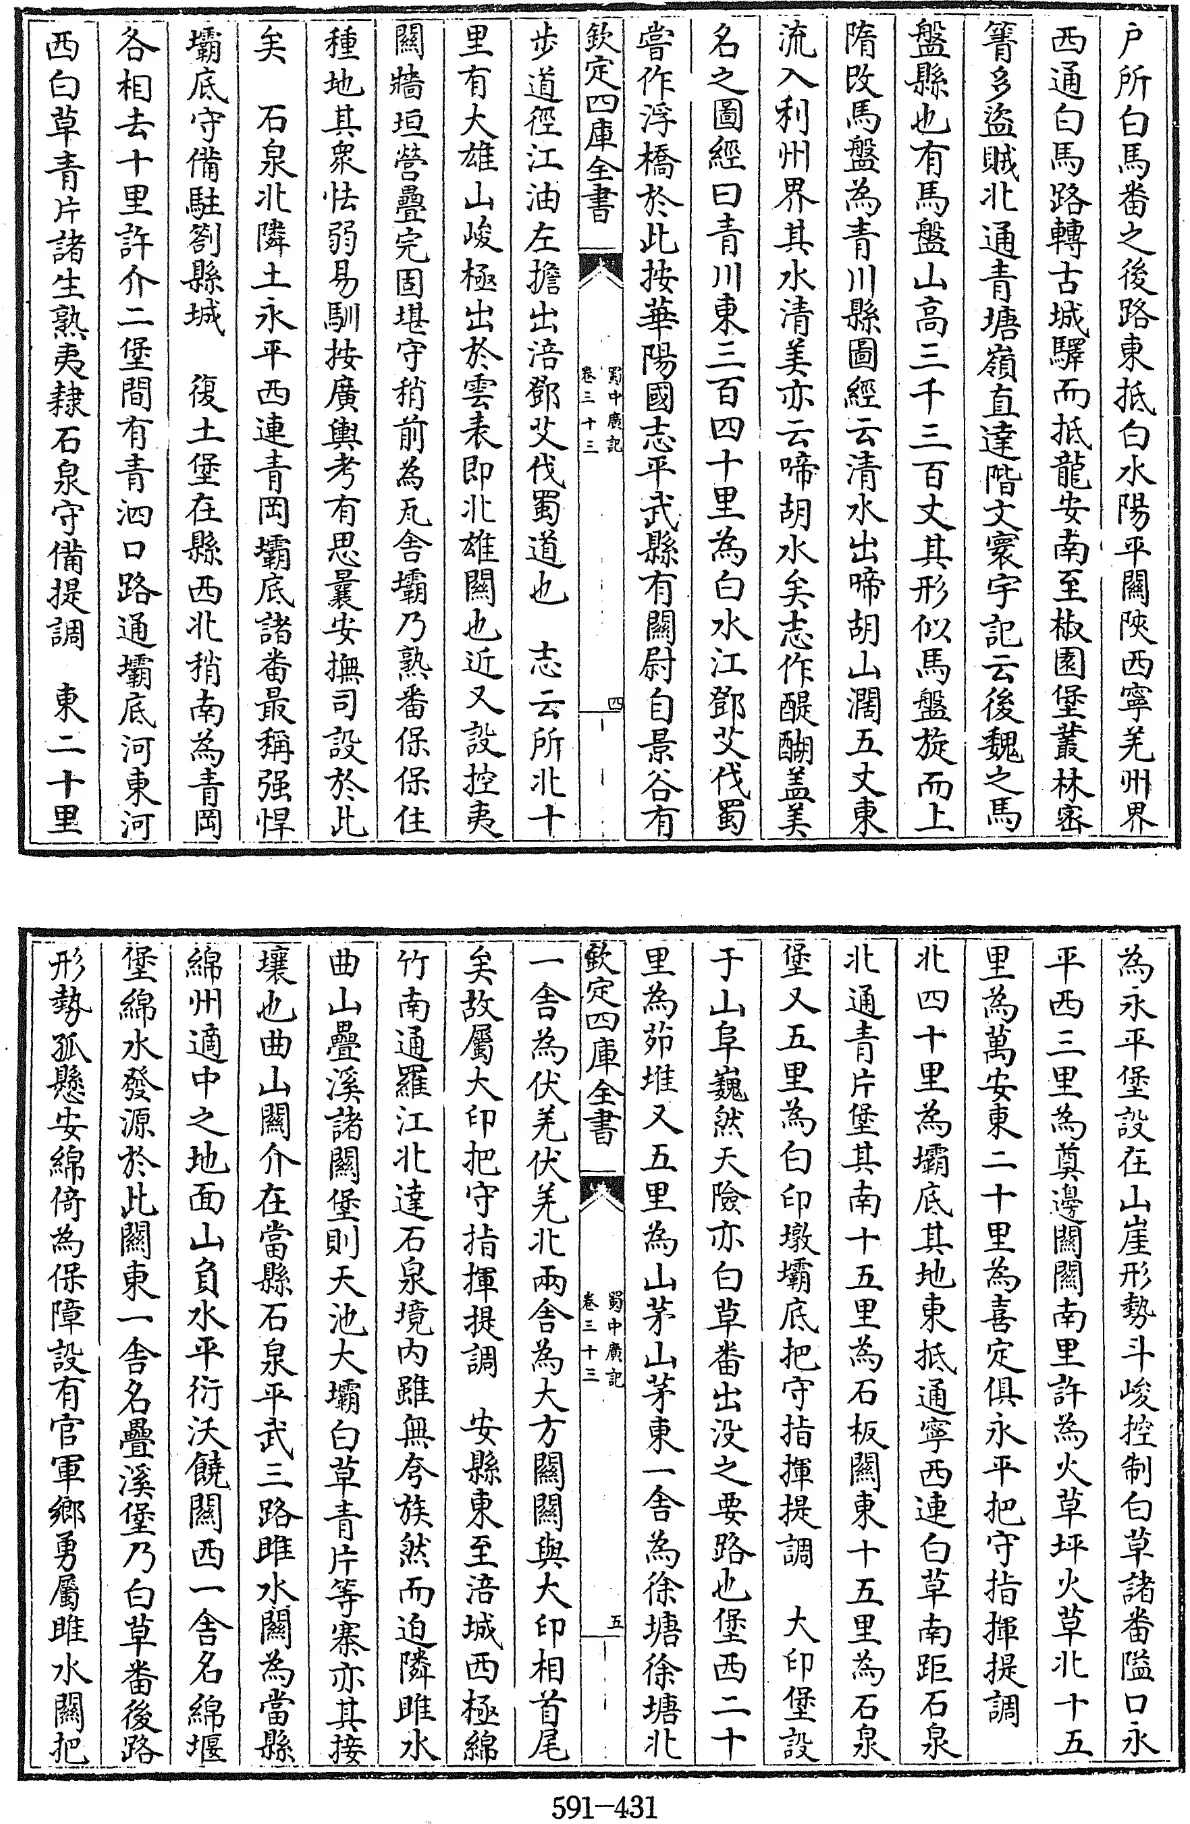 户所白馬畨之後路東抵白水陽平關陜西寧羌州界
西通白馬路轉古城驛而抵龍安南至椒園堡叢林宻
箐多盜賊北通青塘嶺直達階文寰宇記云後魏之馬
盤縣也有馬盤山高三千三百丈其形似馬盤旋而上
隋改馬盤為青川縣圖經云清水出啼胡山濶五丈東
流入利州界其水清美亦云啼胡水矣志作醍醐盖美
名之圖經曰青川東三百四十里為白水江鄧艾伐蜀
嘗作浮橋於此按華陽國志平武縣有關尉自景谷有
欽定四庫全書 蜀中廣記 卷三十三 四
步道徑江油左擔出涪鄧艾伐蜀道也 志云所北十
里有大雄山峻極出於雲表即北雄關也近又設控夷
關牆垣營疊完固堪守稍前為瓦舍壩乃熟畨保保住
種地其衆怯弱易馴按廣輿考有思曩安撫司設於此
矣 石泉北隣土永平西連青岡壩底諸畨最稱强悍
壩底守備駐劄縣城 復土堡在縣西北稍南為青岡
各相去十里許介二堡間有青泗口路通壩底河東河
西白草青片諸生熟夷隸石泉守備提調 東二十里
為永平堡設在山崖形勢斗峻控制白草諸畨隘口永
平西三里為奠邊關關南里許為火草坪火草北十五
里為萬安東二十里為喜定俱永平把守指揮提調
北四十里為壩底其地東抵通寧西連白草南距石泉
北通青片堡其南十五里為石板關東十五里為石泉
堡又五里為白印墩壩底把守指揮提調 大印堡設
于山阜巍然天險亦白草畨出没之要路也堡西二十
里為茆堆又五里為山茅山茅東一舍為徐塘徐塘北
欽定四庫全書 蜀中廣記 卷三十三 五
一舍為伏羌伏羌北兩舍為大方關關與大印相首尾
矣故屬大印把守指揮提調 安縣東至涪城西極綿
竹南通羅江北達石泉境内雖無夸族然而迫隣雎水
曲山疊溪諸關堡則天池大壩白草青片等寨亦其接
壤也曲山關介在當縣石泉平武三路雎水關為當縣
綿州適中之地面山負水平衍沃饒關西一舍名綿堰
堡綿水發源於此關東一舍名疊溪堡乃白草畨後路
形勢孤懸安綿倚為保障設有官軍鄉勇屬雎水關把
591-431